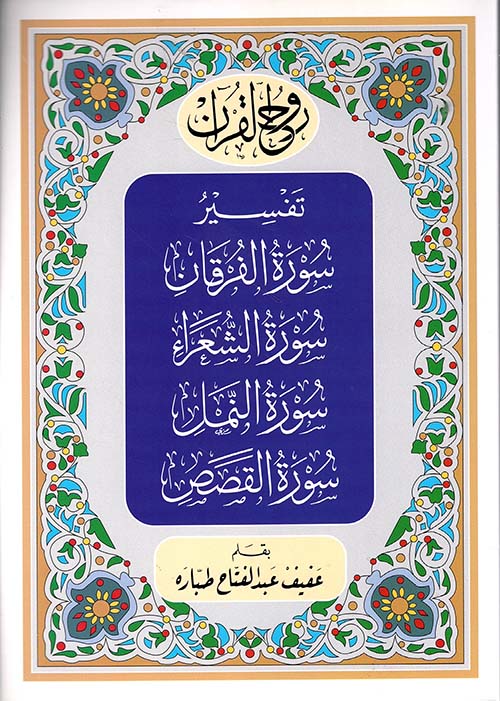 روح القرآن
تَفْسِيرُ
سُورَةُ الفُرقَانِ
سُورَةُ الشُّعَرَاءِ
سُورَةُ النَّمْلِ
سُورَةُ القَصَصِ
بقلم
عفيف عبدالفتاح طبّاره